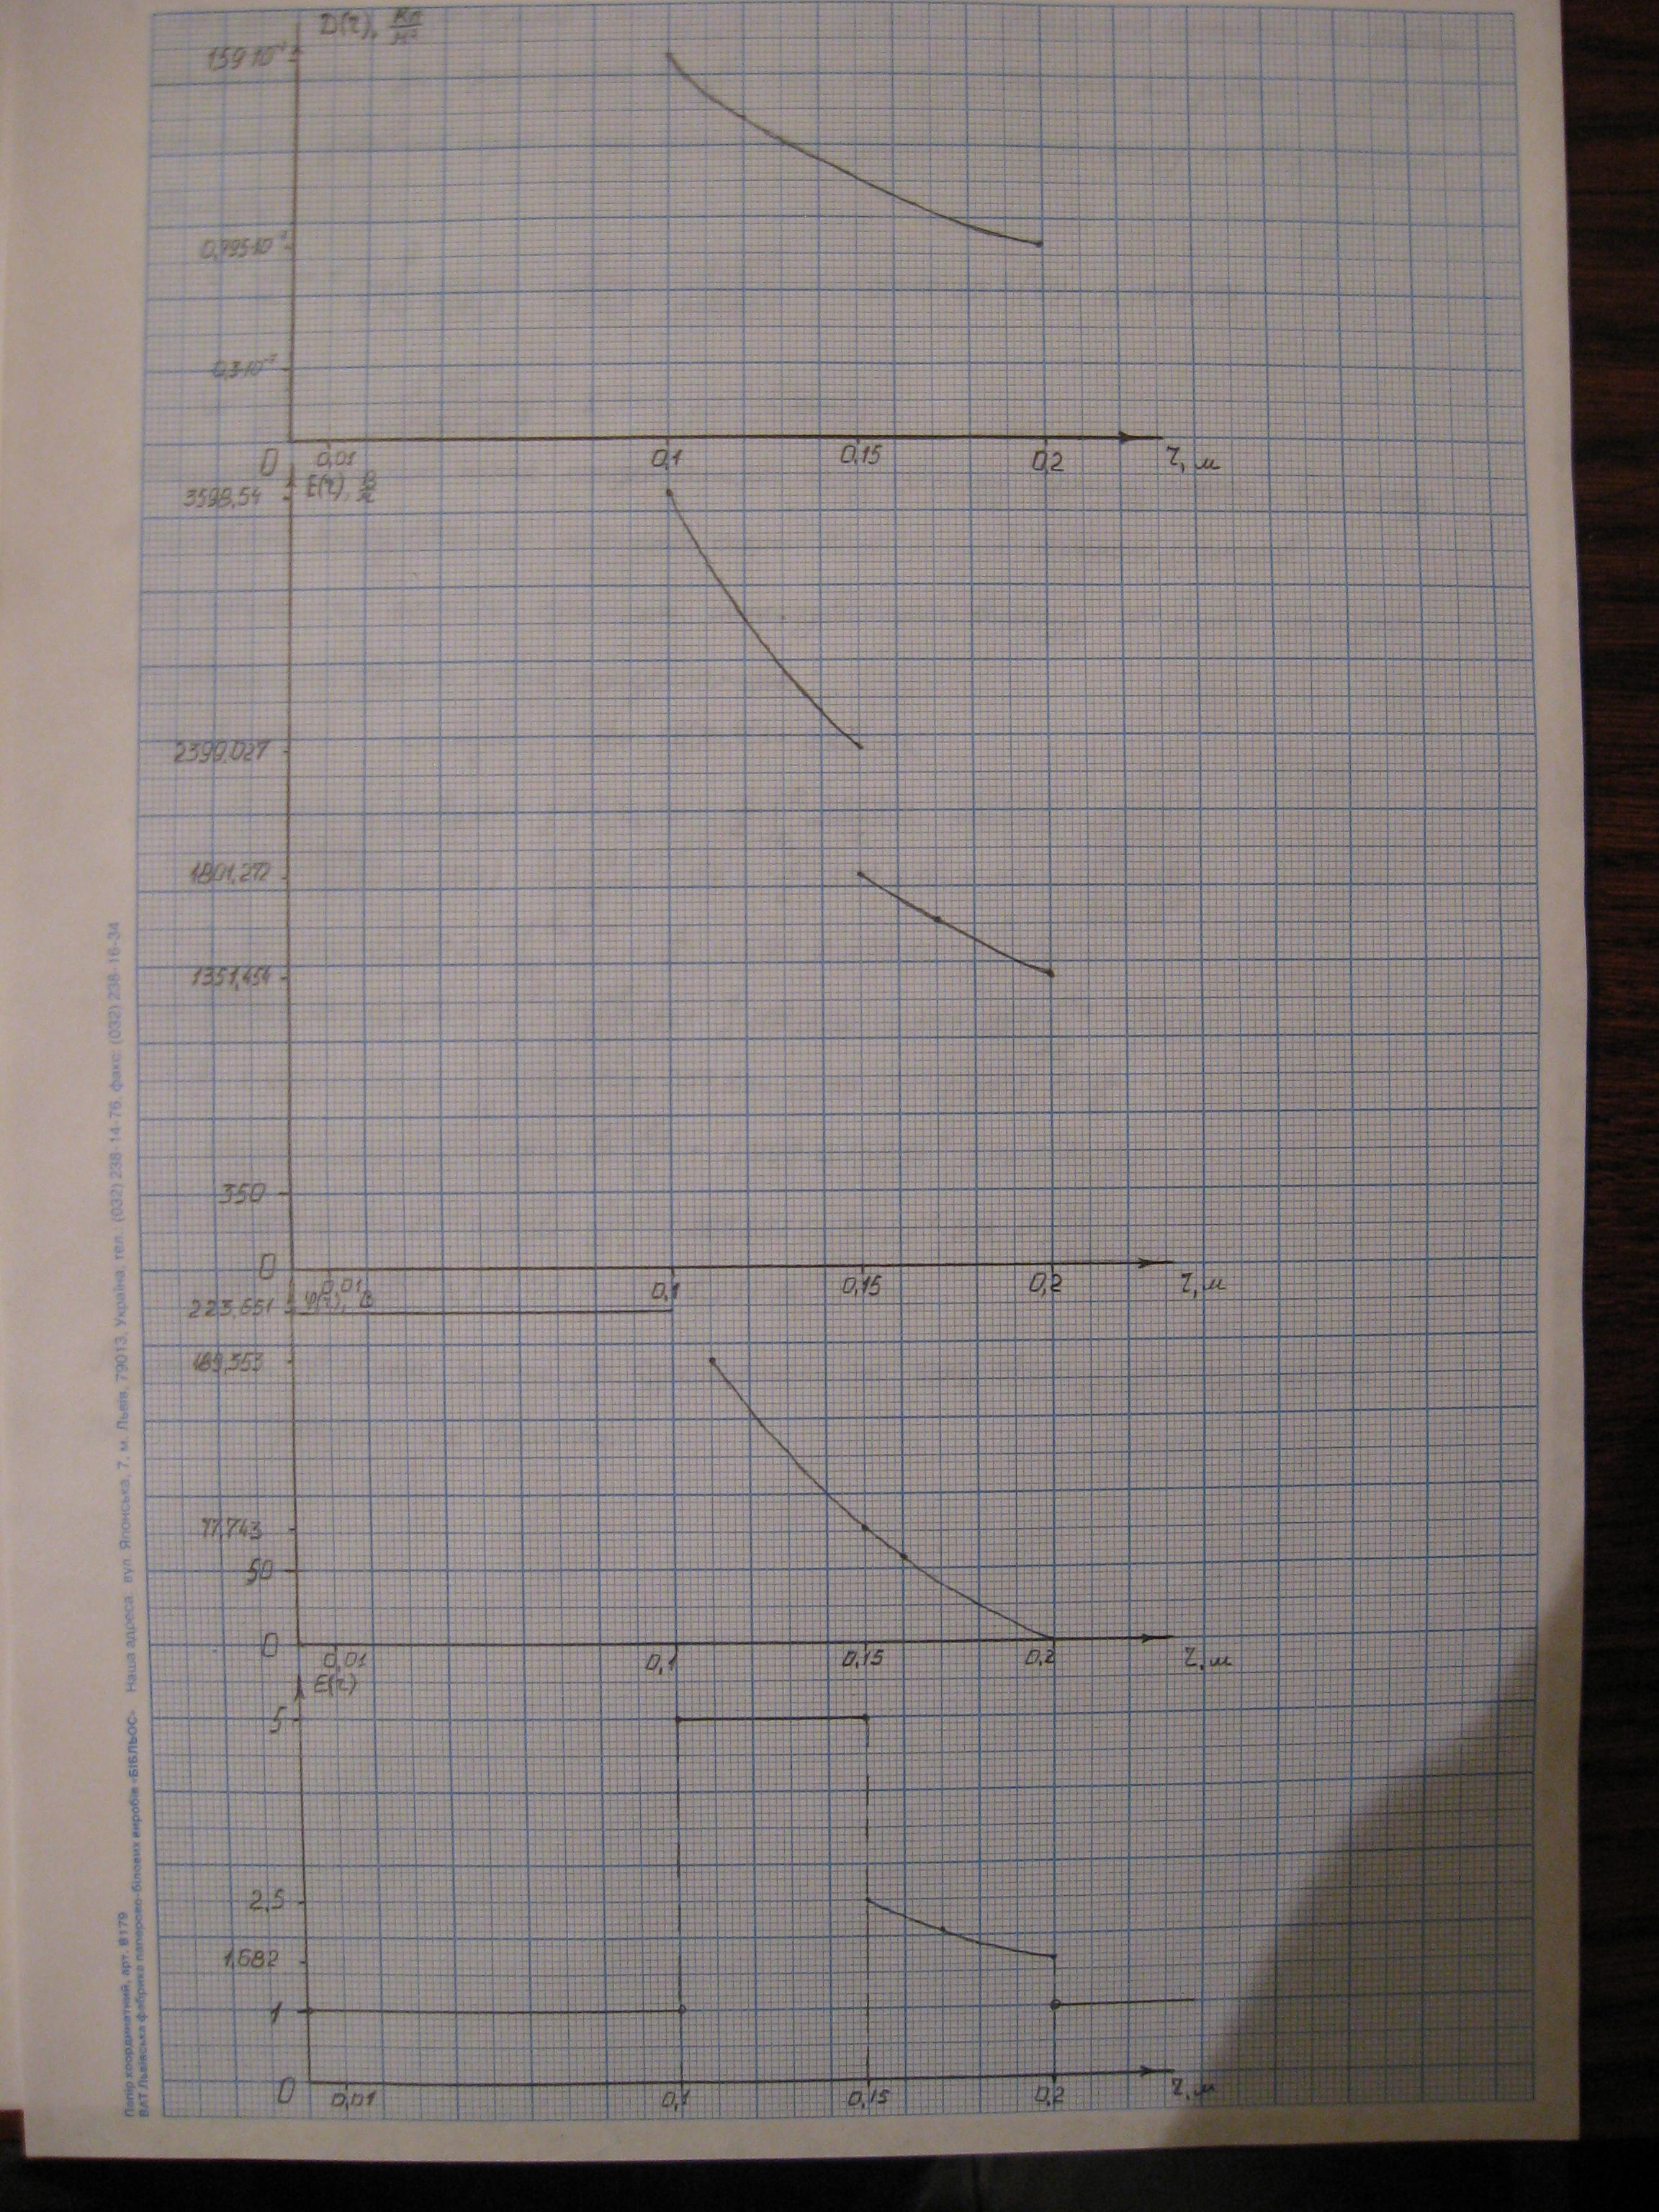 D(r), Кл/м²
1,59·10⁻⁷
0,795·10⁻⁷
0,3·10⁻⁷
0 0,01 0,1 0,15 0,2 r, м
E(r), В/м
3598,54
2399,027
1801,272
1351,454
350
0 0,01 0,1 0,15 0,2 r, м
φ(r), В
223,651
189,353
77,743
50
0 0,01 0,1 0,15 0,2 r, м
Ɛ(r)
5
2,5
1,682
1
0 0,01 0,1 0,15 0,2 r, м
Папір координатний, арт. В179
ВАТ Львівська фабрика паперово-білових виробів «БІБЛЬОС» Наша адреса: вул. Японська, 7, м. Львів, 79013, Україна. тел. (032) 238-14-76, факс: (032) 238-16-34